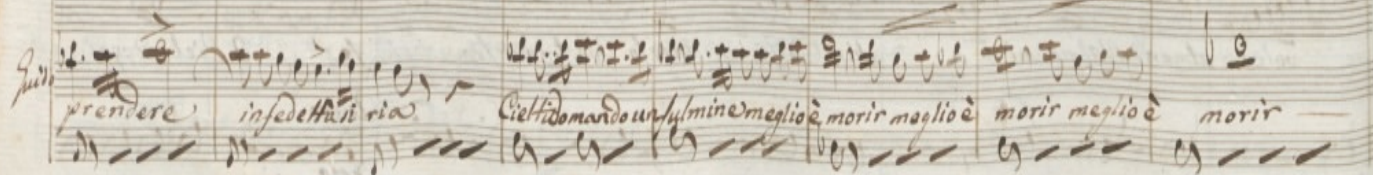 Guido
prendere infedeltà ria Ciel ti domando un fulmine meglio è morir meglio è morir meglio è morir